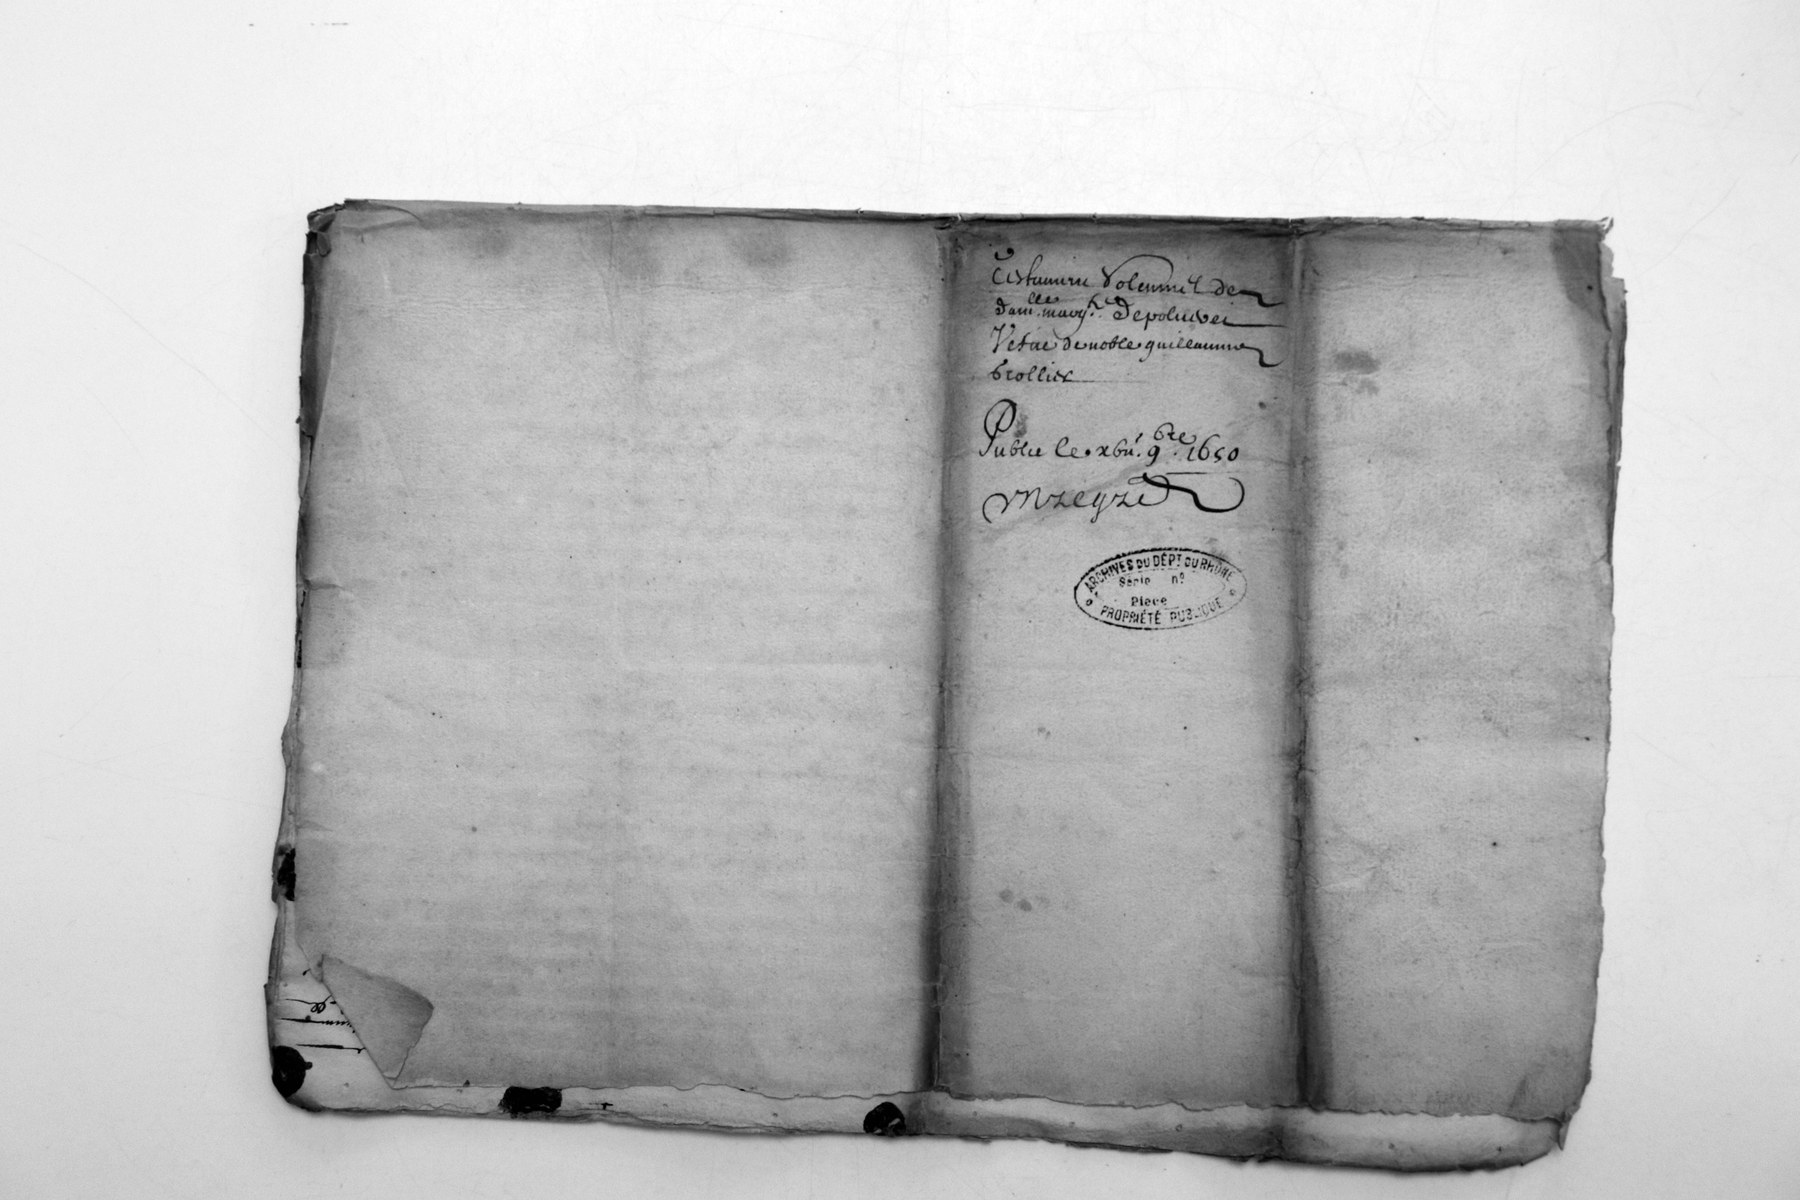 Testament Solemnel de
dam.lle marg.te Depoluvei
Vefue de noble guillaume
brollier
Publie le xbii.e 9.bre 1650
ARCHIVES DU DÉPT DU RHÔNE
Série nº
Pièce
PROPRIÉTÉ PUBLIQUE